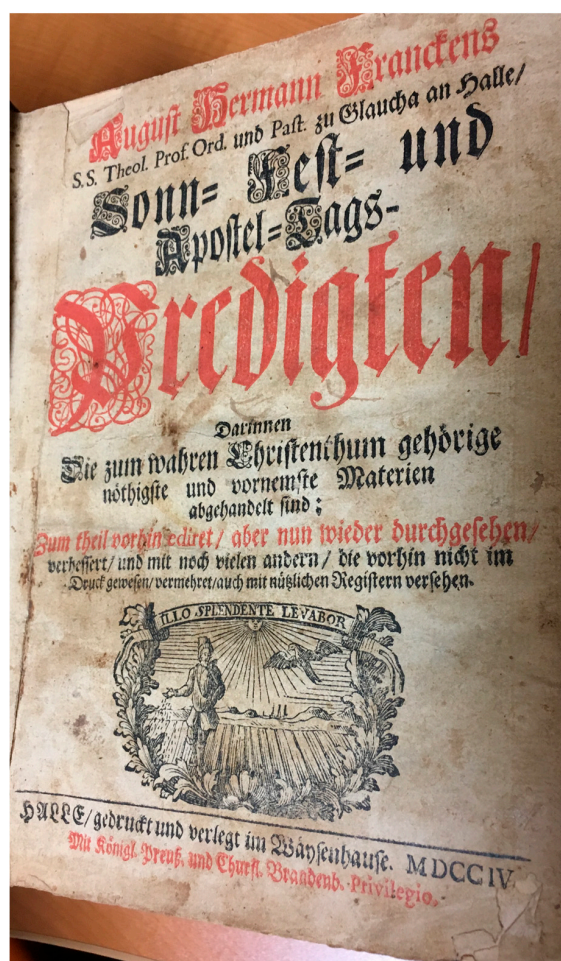 August Hermann Franckens
S.S. Theol. Prof. Ord. und Past. zu Glaucha an Halle/
Sonn= Fest= und
Apostel=Tags-
Predigten/
Darinnen
Die zum wahren Christenthum gehörige
nöthigste und vornemste Materien
abgehandelt sind;
Zum theil vorhin ediret/ aber nun wieder durchgesehen/
verbessert/ und mit noch vielen andern/ die vorhin nicht im
Druck gewesen/ vermehret/auch mit nützlichen Registern versehen.
ILLO SPLENDENTE LEVABOR
HALLE/gedruckt und verlegt im Wäysenhause. MDCCIV
Mit Königl. Preuß. und Churfl. Brandenb. Privilegio.